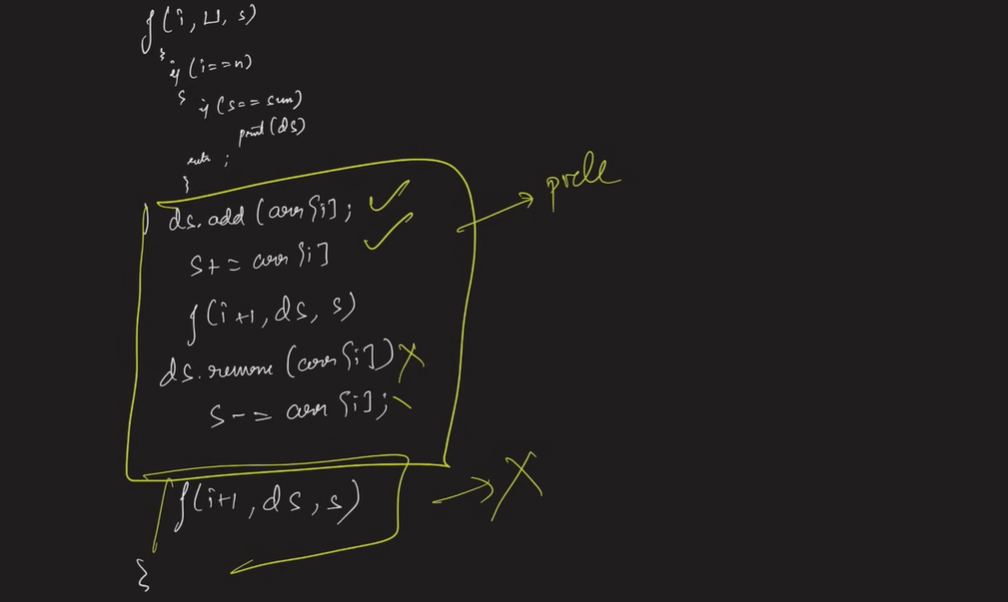 f(i, [], s)
{
if (i==n)
{
if (s== sum)
print(ds)
;
}
ds.add (arr[i];
s+= arr[i]
f(i+1, ds, s)
ds.remove (arr[i])
s-= arr[i];
f(i+1, ds, s)
}